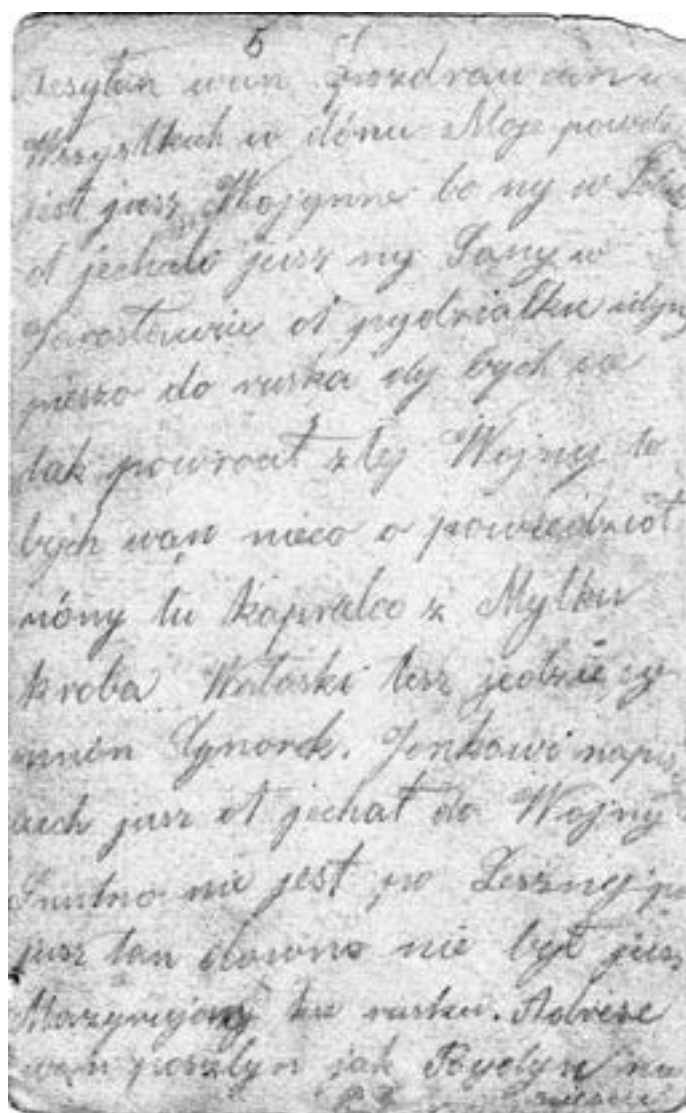 5
Zesyłan wan Pozdrawien w
Wszystkich w dómu Moje powodz
jest jusz Wojynne bo my w
ot jechali jusz my Sóny w
Jarosławiu ot pyndziałku idymy
pieszo do ruska dy bych sie
tak powrócił z tej Wojny to
bych wan nieco o powiedzioł
móny tu kaprala z Mytku
kroba Waloski tesz jedzie zy
mnón Cynorek. Jonkowi napis
aich jusz ot jechał do Wojny
Smutno mie jest po Leszny
jusz tan downo nie był jusz
Maszyrujony ku rusku. Adrese
wan poszlyn jak Bydyn na